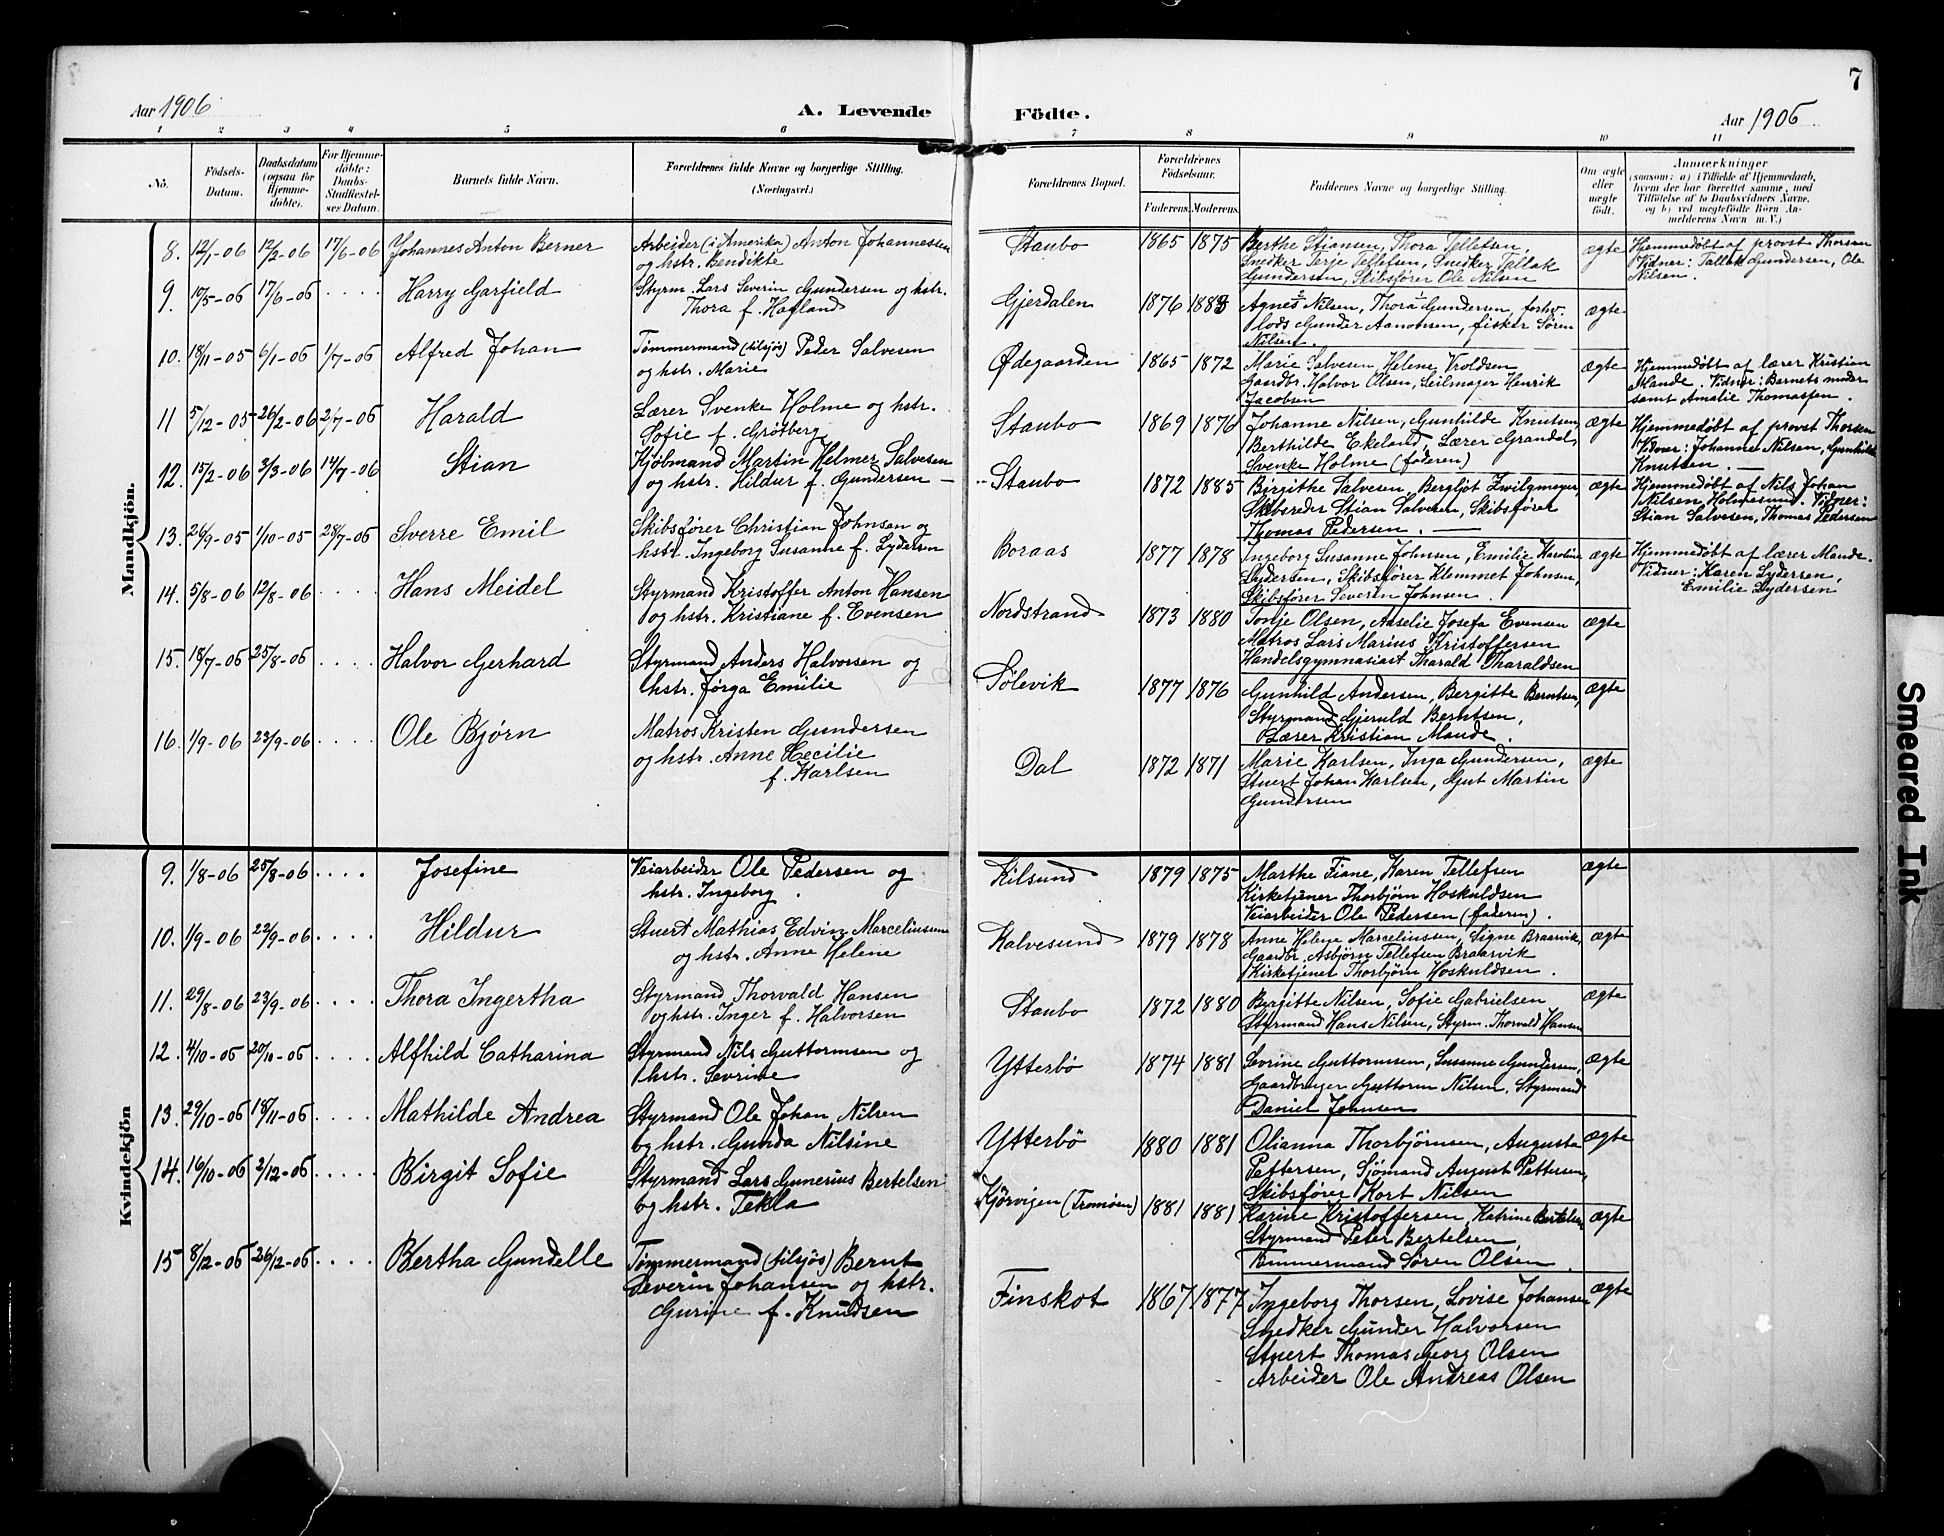 7
Aar 1906
A. Levende
Födte.
Aar 1906
1 2 3 4 5 6 7 8 9 10 11
No.
Födsels-
Datum.
Daabsdatum
(ogsaa for
Hjemme-
döbte).
For Hjemme-
döbte:
Daabs-
Stadfæstel-
ses Datum.
Barnets fulde Navn.
Forældrenes fulde Navne og borgerlige Stilling.
(Næringsvei.)
Forældrenes Bopæl.
Forældrenes
Födselsaar.
Faderens. Moderens.
Faddernes Navne og borgerlige Stilling.
Om ægte
eller
uægte
födt.
Anmærkninger
(saasom: a) i Tilfælde af Hjemmedaab,
hvem der har forrettet samme, med
Tilföielse af to Daabsvidners Navne.
og b) ved uægtefödte Börn An-
melderens Navn m. V.)
Mandkjön.
8. 12/1-06 12/2-06 17/6-06 Johannes Anton Berner
Arbeider (i Amerika) Anton Johannessen
og hstr. Bendikte
Staubo 1865 1875
Berthe Stiansen, Thora Tellefsen,
Snedker Terje Tellefsen, Snedker Tallak
Gundersen, Skibsfører Ole Nilsen
ægte
Hjemmedøbt af provst Thorsen
Vidner: Tallak Gundersen, Ole
Nilsen.
9. 10/5-06 17/6-06 . . . . Harry Garfield
Styrm. Lars Severin Gundersen og hstr.
Thora f. Hafland
Gjerdalen 1876 1883
Agnes Nilsen, Thora Gundersen, forhv.
lods Gunder Aanonsen, fisker Søren
Nilsen.
ægte
10. 18/11-05 6/1-06 1/7-06 Alfred Johan
Tømmermand (tilsjøs) Peder Salvesen
og hstr. Marie
Ødegaarden 1865 1872
Marie Salvesen, Helene Vroldsen
Gaardbr. Halvor Olsen, Seilmager Henrik
Jacobsen
ægte
Hjemmedøbt af lærer Kristian
Mande. Vidner: Barnets moder
samt Amalie Thomassen.
11 5/12-05 26/2-06 2/7-06 Harald
Lærer Svenke Holme og hstr.
Sofie f. Grøtberg
Staubo 1869 1876
Johanne Nilsen, Gunhilde Knutsen,
Berthilde Ekeland, Lærer Grandal,
Svenke Holme (faderen)
ægte
Hjemmedøbt af provst Thorsen
Vidner: Johanne Nilsen, Gunhilde
Knutsen. —
12. 15/2-06 3/3-06 14/7-06 Stian
Kjøbmand Martin Helmer Salvesen
og hstr. Hildur f. Gundersen —
Staubo 1872 1885
Birgithe Salvesen, Bergljot Zwilgmeyer,
Skibsreder Stian Salvesen, Skibsfører
Thomas Pedersen. —
ægte
Hjemmedøbt af Nils Johan
Nilsen, Holmesund. Vidner:
Stian Salvesen, Thomas Pedersen
13. 26/9-05 1/10-05 28/7-06 Sverre Emil
Skibsfører Christian Johnsen og
hstr. Ingeborg Susanne f. Lydersen
Boraas 1877 1878
Ingeborg Susanne Johnsen, Emilie Karoline
Lydersen, Skibsfører Klemmet Johnsen,
Skibsfører Severin Johnsen.
ægte
Hjemmedøbt af lærer Mande.
Vidner: Karen Lydersen,
Emilie Lydersen
14. 5/8-06 12/8-06 . . . . Hans Meidel
Styrmand Kristoffer Anton Hansen
og hstr. Kristiane f. Evensen
Nordstrand 1873 1880
Tonje Olsen, Aaselie Josefa Evensen
Matros Lars Marius Kristoffersen
Handelsgymnasiast Tharald Tharaldsen
ægte
15. 18/7-06 25/8-06 . . . . Halvor Gerhard
Styrmand Anders Halvorsen og
hstr. Jørga Emilie
Sølevik 1877 1876
Gunhild Andersen, Bergitte Berntsen,
Styrmand Gjeruld Berntsen,
Lærer Kristian Mande.
ægte
16. 1/9-06 23/9-06 . . . . Ole Bjørn
Matros Kristen Gundersen
og hstr. Anne Cecilie
f. Karlsen
Dal 1872 1871
Marie Karlsen, Inga Gundersen,
Stuert Johan Karlsen, Gut Martin
Gundersen
ægte
Kvindekjön
9. 1/8-06 25/8-06 . . . . Josefine
Veiarbeider Ole Pedersen og
hstr. Ingeborg.
Kilsund 1879 1875
Marthe Fiane, Karen Tellefsen
Kirketjener Thorbjørn Hoskuldsen
Veiarbeider Ole Pedersen (faderen).
ægte
10. 1/9-06 22/9-06 . . . . Hildur
Stuert Mathias Edvin Marceliussen
og hstr. Anne Helene
Kalvesund 1879 1878
Anne Helene Marceliussen, Signe Braarvik,
Gaardbr. Asbjørn Tellefsen Braarvik
Kirketjener Thorbjørn Hoskuldsen.
ægte
11. 29/8-06 23/9-06 . . . . Thora Ingertha
Styrmand Thorvald Hansen
og hstr. Inger f. Halvorsen
Staubo 1872 1880
Birgitte Nilsen, Sofie Gabrielsen
Styrmand Hans Nilsen, Styrm. Thorvald Hansen
ægte
12. 4/10-06 20/10-06 . . . . Alfhild Catharina
Styrmand Nils Guttormsen og
hstr. Sevrine
Ytterbø 1874 1881
Sevrine Guttormsen, Susanne Gundersen,
Gaardbruger Guttorm Nilsen, Styrmand
Daniel Johnsen
ægte
13. 29/10-06 18/11-06 . . . . Mathilde Andrea
Styrmand Ole Johan Nilsen
og hstr. Gunda Nilsine
Ytterbø 1880 1881
Olianna Thorbjørnsen, Augusta
Pettersen, Sjømand August Pettersen,
Skibsfører Kort Nilsen
ægte
14. 16/10-06 2/12-06 . . . . Birgit Sofie
Styrmand Lars Gunerius Bertelsen
og hstr. Tekla
Kjørvigen (Tromøen) 1881 1881
Karine Kristoffersen, Katrine Bertelsen
Styrmand Peter Bertelsen,
Tømmermand Søren Olsen.
ægte
15 8/12-06 26/12-06 Bertha Gundelle
Tømmermand (tilsjøs) Bernt
Severin Johansen og hstr.
Gurine f. Knudsen
Finskot 1867 1877
Ingeborg Thorsen, Lovise Johansen
Snedker Gunder Halvorsen
Stuert Thomas Georg Olsen
Arbeider Ole Andreas Olsen
ægte
Smeared Ink